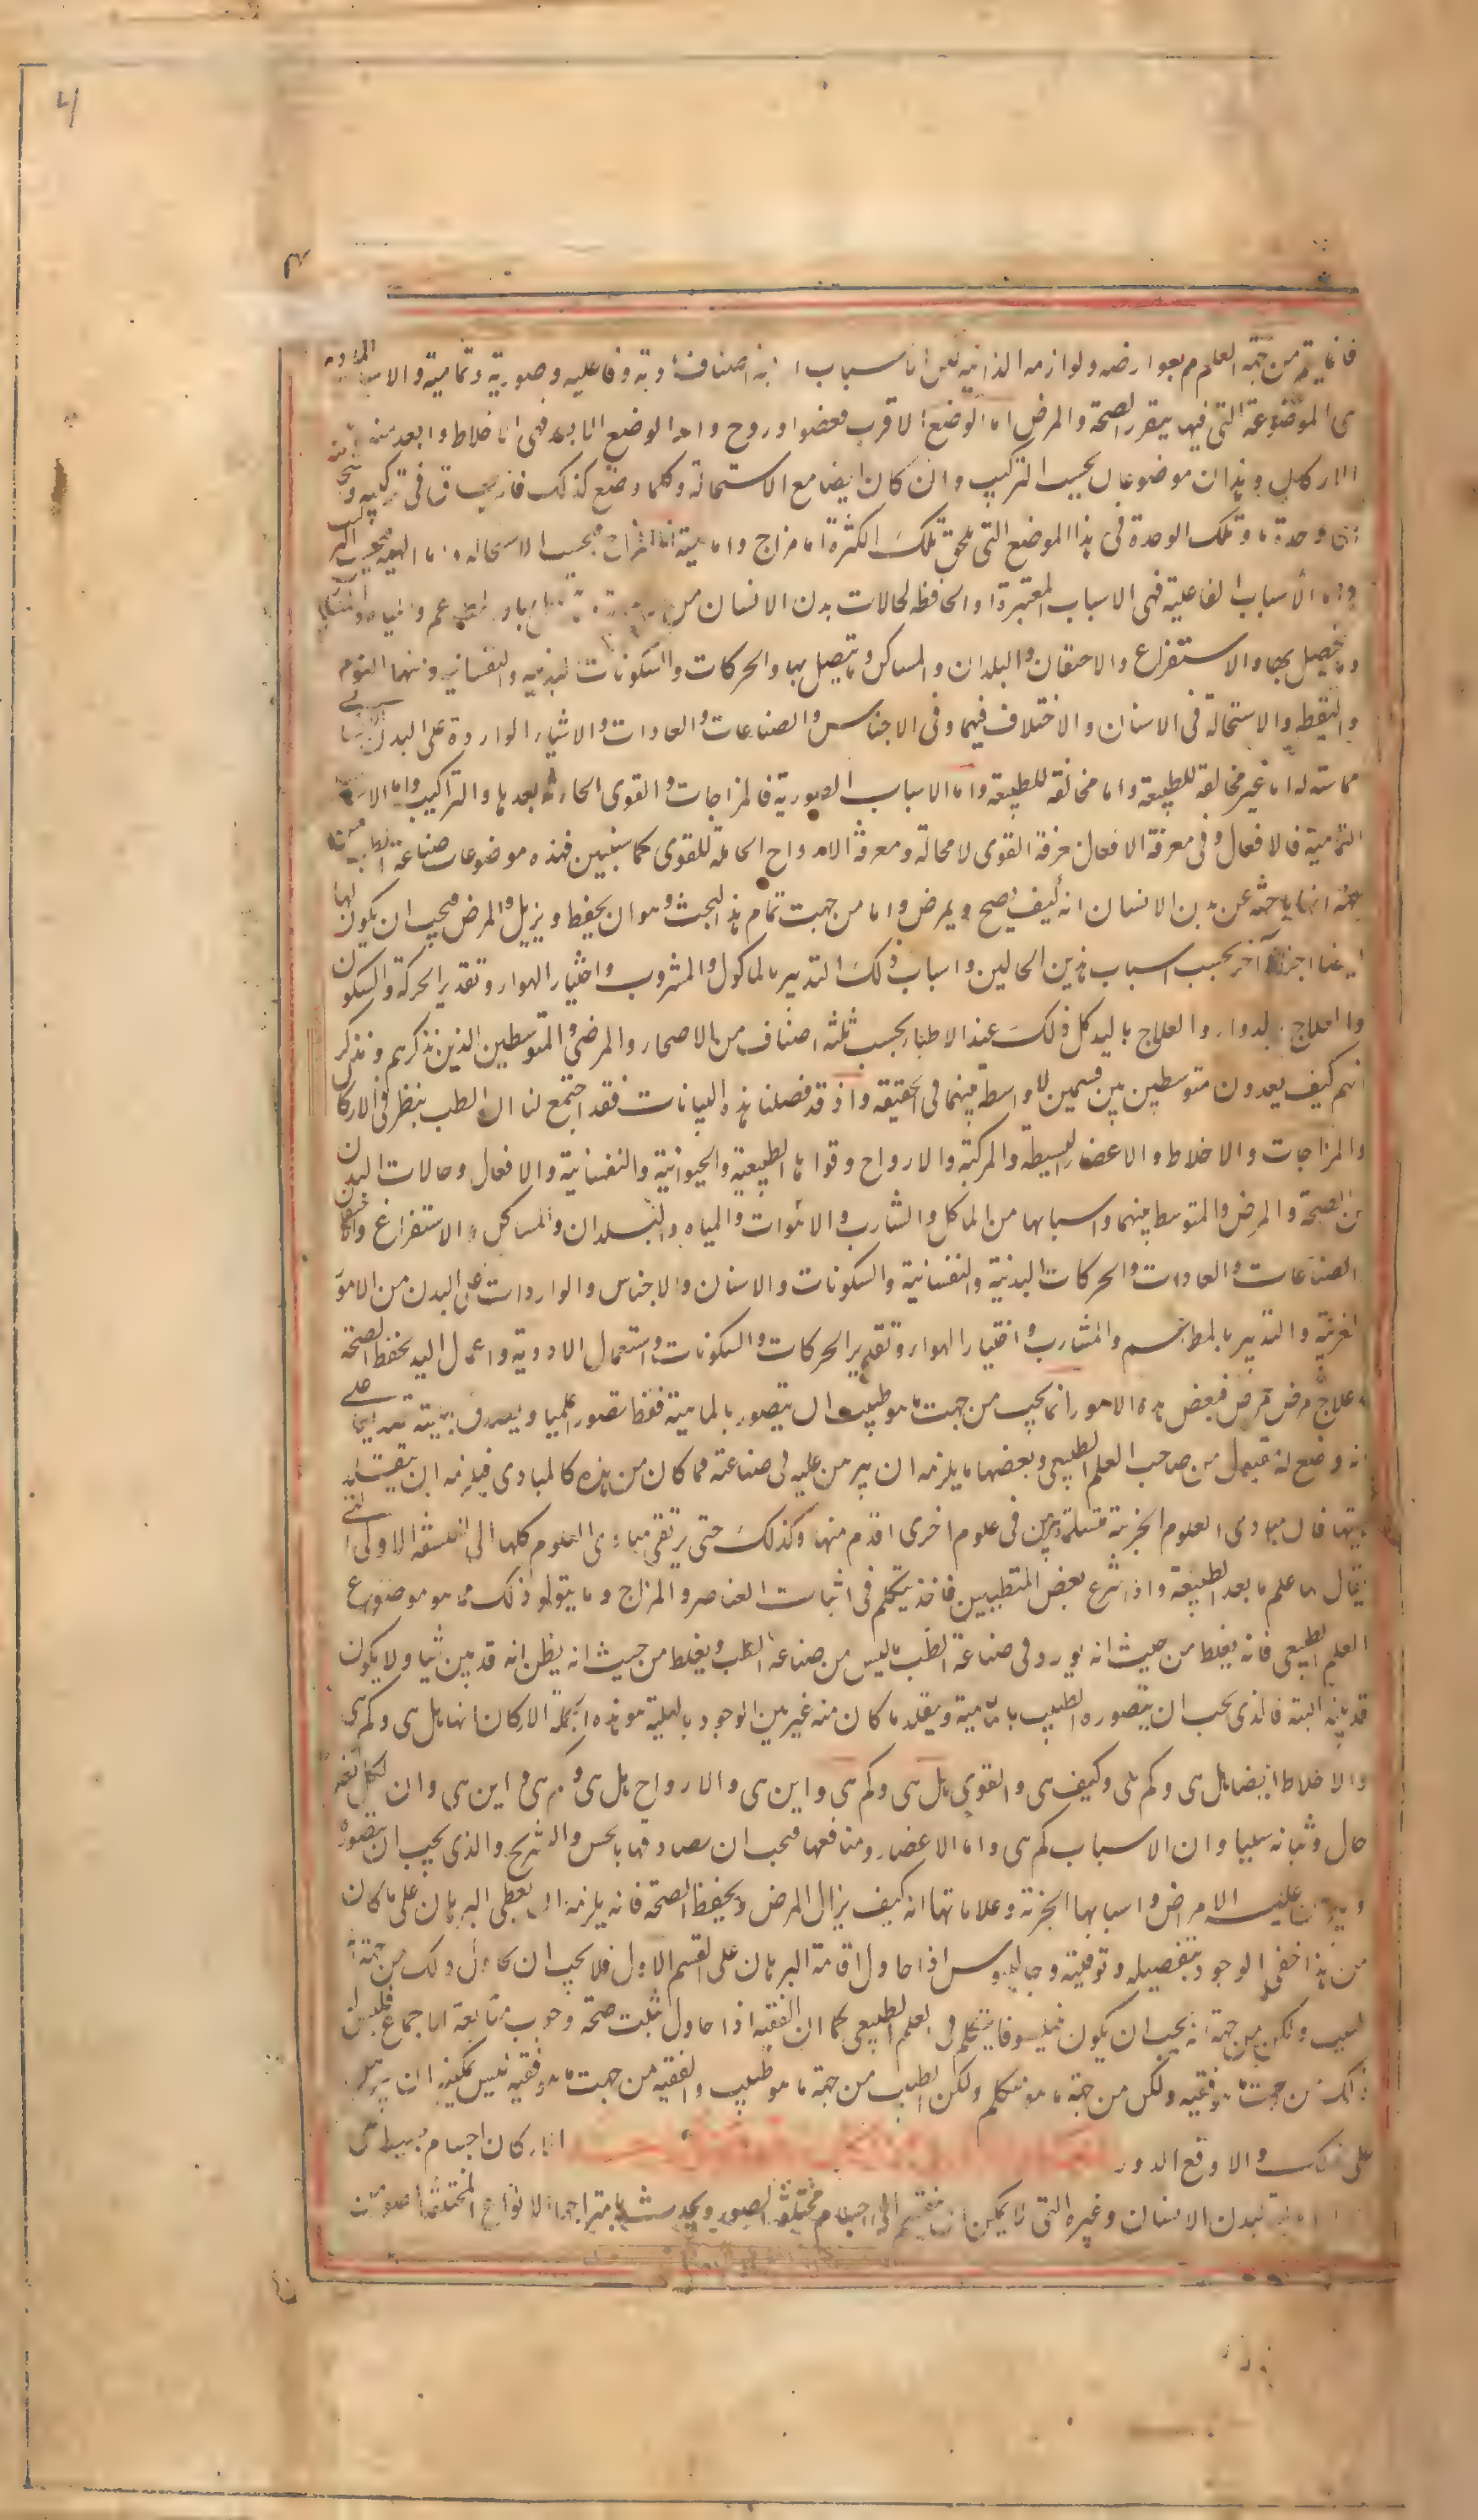 م
فانما يتم من جهة العلم بعوارضه ولوازمه الذاتية لكن الاسباب اصناف مادية وفاعلية وصورية وتمامية والاسباب المادية
هى الموضوعة التى فيها يتقرر الصحة والمرض اما الوضع الاقرب فعضو او روح واما الوضع الابعد فهى الاخلاط وابعد منه
الاركان وهذان موضوعان بحسب التركيب وان كان ايضا مع الاستحالة وكلما وضع كذلك فانه يساق فى تركيبه و
الى وحدة ما وتلك الوحدة فى هذا الموضع التى تلحق تلك الكثرة اما مزاج واما هيئة اما المزاج فبحسب الاستحالة واما الهيئة فبحسب التركيب
واما الأسباب الفاعلية فهى الاسباب المغيرة او الحافظة لحالات بدن الانسان من المطاعم والمياه
وما يتصل بها والاستفراغ والاحتقان والبلدان والمساكن وما يتصل بها والحركات والسكونات البدنيه والنفسانيه ومنها النوم
واليقظه والاستحالة فى الاسنان والاختلاف فيها وفى الاجناس والصناعات والعادات والاشياء الواردة على البدن
مماسته له اما غير مخالفة للطبيعة واما مخالفة للطبيعة واما الاسباب الصورية فالمزاجات والقوى الحادثة بعدها والتراكيب واما الاسباب
التمامية فالافعال وفى معرفة الافعال معرفة القوى لا محالة ومعرفة الارواح الحاملة للقوى كما سنبين فهذه موضوعات صناعة الطب من
جهة انها باحثة عن بدن الانسان انه كيف يصح ويمرض واما من جهت تمام هذا البحث وهو ان يحفظ ويزيل المرض فيجب ان يكون لها
ايضا اجزاء آخر بحسب اسباب هذين الحالين واسباب ذلك التدبير بالماكول والمشروب واختيار الهواء وتقدير الحركة والسكون
والعلاج بالدواء والعلاج باليد كل ذلك عند الاطباء بحسب ثلثة اصناف من الاصحاء والمرضى والمتوسطين الذين نذكرهم ونذكر
انهم كيف يعدون متوسطين بين قسمين لا واسطة بينهما فى الحقيقة واذ قد فصلنا هذه البيانات فقد اجتمع لنا ان الطب ينظر فى الاركان
والمزاجات والاخلاط والاعضاء البسيطة والمركبة والارواح وقواها الطبيعية والحيوانية والنفسانية والافعال وحالات البدن
من الصحة والمرض والمتوسط بينهما واسبابها من الماكل والمشارب والاهوات والمياه والبلدان والمساكن والاستفراغ والاحتقان
الصناعات والعادات والحركات البدنية والنفسانية والسكونات والاسنان والاجناس والواردات على البدن من الامور
الغريبة والتدبير بالمطاعم والمشارب واختيار الهواء وتقدير الحركات والسكونات واستعمال الادوية واعمال اليد لحفظ الصحة
وعلاج مرض مرض فبعض هذه الامور انما يجب من جهت ما هو طبيب ان يتصور بالماهية فقط تصورا علميا ويصدق بهيئة تصديقا على
انه وضع له مقبول من صاحب العلم الطبيعى وبعضها ما يلزمه ان يبرهن عليه فى صناعته فما كان من هذه كالمبادى فيلزمه ان يتقلد
هيتها فان مبادى العلوم الجزئية متسلمة تبين فى علوم اخرى اقدم منها وكذلك حتى يرتقى مبادى العلوم كلها الى الفلسفة الاولى التى
يقال لها علم ما بعد الطبيعة واذا شرع بعض المتطببين فاخذ يتكلم فى اثبات العناصر والمزاج وما يتلو ذلك مما هو موضوع
العلم الطبيعى فانه يغلط من حيث انه يورد فى صناعة الطب ما ليس من صناعة الطب ويغلط من حيث انه يظن انه قد بين شيا ولا يكون
قد بينه البته فالذى يجب ان يتصوره الطبيب بالماهية ويتقلد ما كان منه غير بين الوجود بالهلية هو هذه الجملة الاركان انها هل هى وكم هى
والاخلاط ايضا هل هى وكم هى وكيف هى والقوى هل هى وكم هى واين هى والارواح هل هى وكم هى واين هى وان لكل تغير
حال وثباته سببا وان الاسباب كم هى واما الاعضاء ومنافعها فيجب ان يصادفها بالحس والتشريح والذى يجب ان يتصوره
ويبرهن عليه الامراض واسبابها الجزئية وعلاماتها انه كيف يزال المرض ويحفظ الصحة فانه يلزمه ان يعطى البرهان على ما كان
من هذا خفى الوجود بتفصيله وتوقيته وجالينوس اذا حاول اقامة البرهان على القسم الاول فلا يجب ان يحاول ذلك من جهة انه
طبيب ولكن من جهة انه يجب ان يكون فيلسوفا يتكلم فى العلم الطبيعى كما ان الفقيه اذا حاول يثبت صحة وجوب متابعة الاجماع فليس له
ذلك من جهت ما هو فقيه ولكن من جهة ما هو متكلم ولكن الطبيب من جهة ما هو طبيب والفقيه من جهت ما هو فقيه ليس يمكنه ان يبرهن
على ذلك والا وقع الدور
الاركان اجسام بسيطة هى
لبدن الانسان وغيره التى لا يمكن ان ينقسم الى اجسام مختلفة الصور ويحدث بامتزاجها الانواع المختلفة